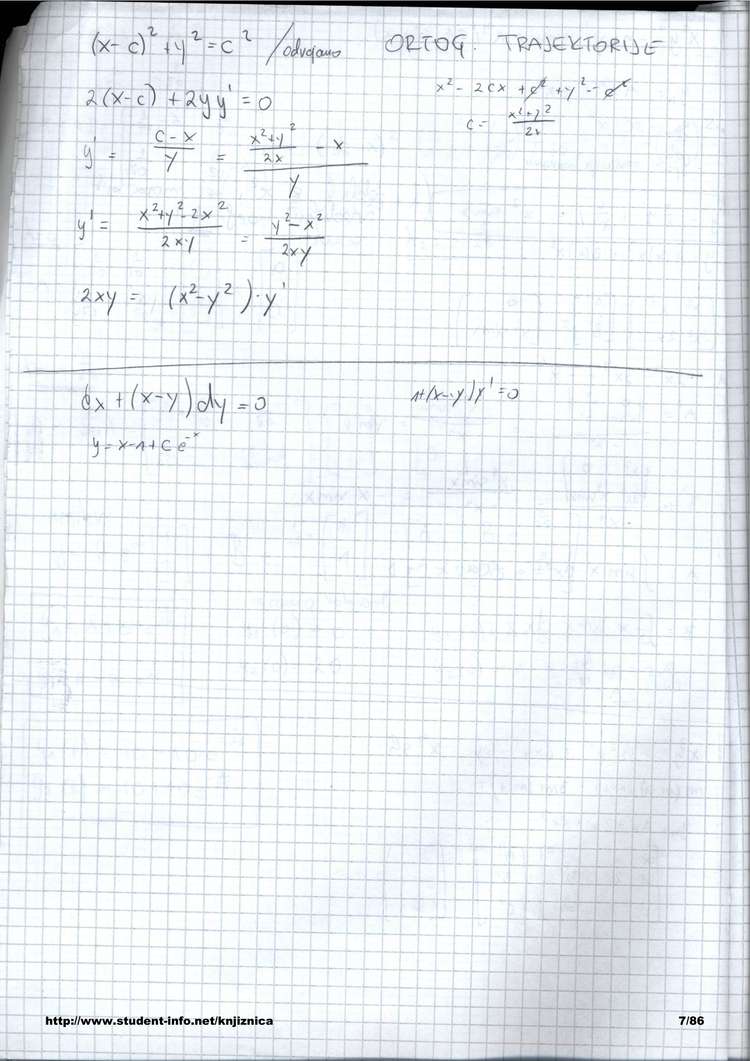 (x-c)² + y² = c² /odvajamo ORTOG. TRAJEKTORIJE
x² - 2cx + c² + y² = c²
2(x-c) + 2yy' = 0
c = (x²+y²)/2x
y' = (c-x)/y = ((x²+y²)/2x - x)/y
y' = (x²+y²-2x²)/2xy = (y²-x²)/2xy
2xy = (x²-y²)·y'
dx + (x-y)dy = 0 1+(x-y)y' = 0
y = x-1+C e^-x
http://www.student-info.net/knjiznica 7/86